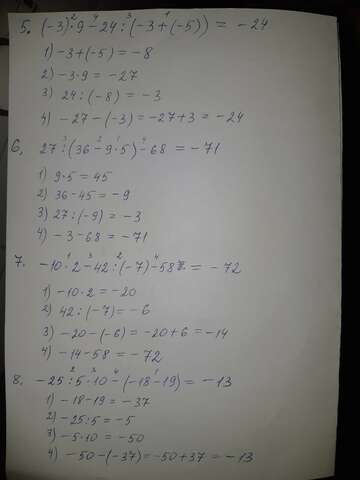 5. (-3)·9-24:(-3+(-5)) = -24
1) -3+(-5) = -8
2) -3·9 = -27
3) 24:(-8) = -3
4) -27-(-3) = -27+3 = -24
6. 27:(36-9·5)-68 = -71
1) 9·5 = 45
2) 36-45 = -9
3) 27:(-9) = -3
4) -3-68 = -71
7. -10·2-42:(-7)-58 = -72
1) -10·2 = -20
2) 42:(-7) = -6
3) -20-(-6) = -20+6 = -14
4) -14-58 = -72
8. -25:5·10-(-18-19) = -13
1) -18-19 = -37
2) -25:5 = -5
3) -5·10 = -50
4) -50-(-37) = -50+37 = -13